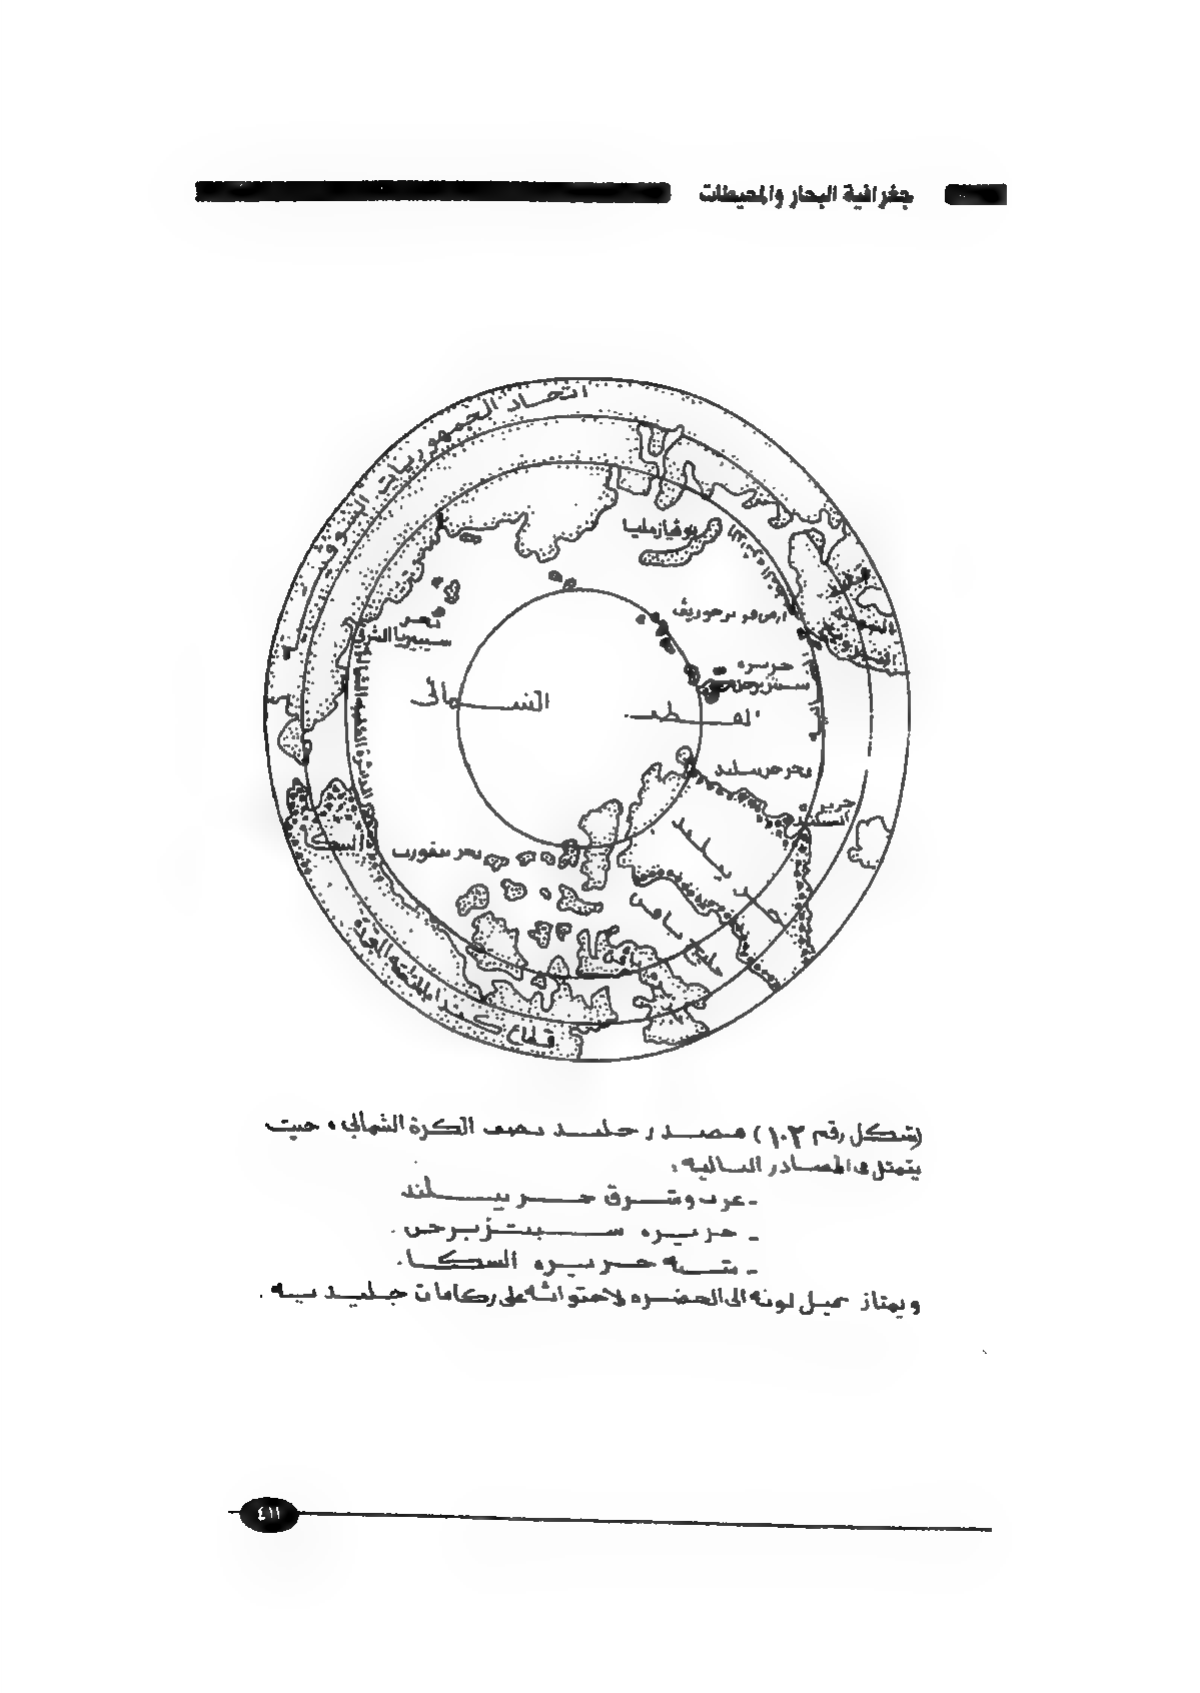 جغرافية البحار والمحيطات
اتحاد الجمهوريات السوفي
نوفيازمليا
بحر
سيبيريا الشرقى
جزيره
سبتزبرجن
القطب
الشمالى
بحر جرينلند
جرينلند
السكا
بحر بيفورت
خليج بافن
بافن
قطاع كندا
(شكل رقم ١٠٢) مصادر جليد نصف الكرة الشمالي، حيث
يتمثل فى المصادر التاليه:
- غرب وشرق جرينلند
- جزيره سبتزبرجن.
- شبه جزيره السكا.
ويمتاز بميل لونه الى الخضره لاحتوائه على ركامات جليديه.
٤١١